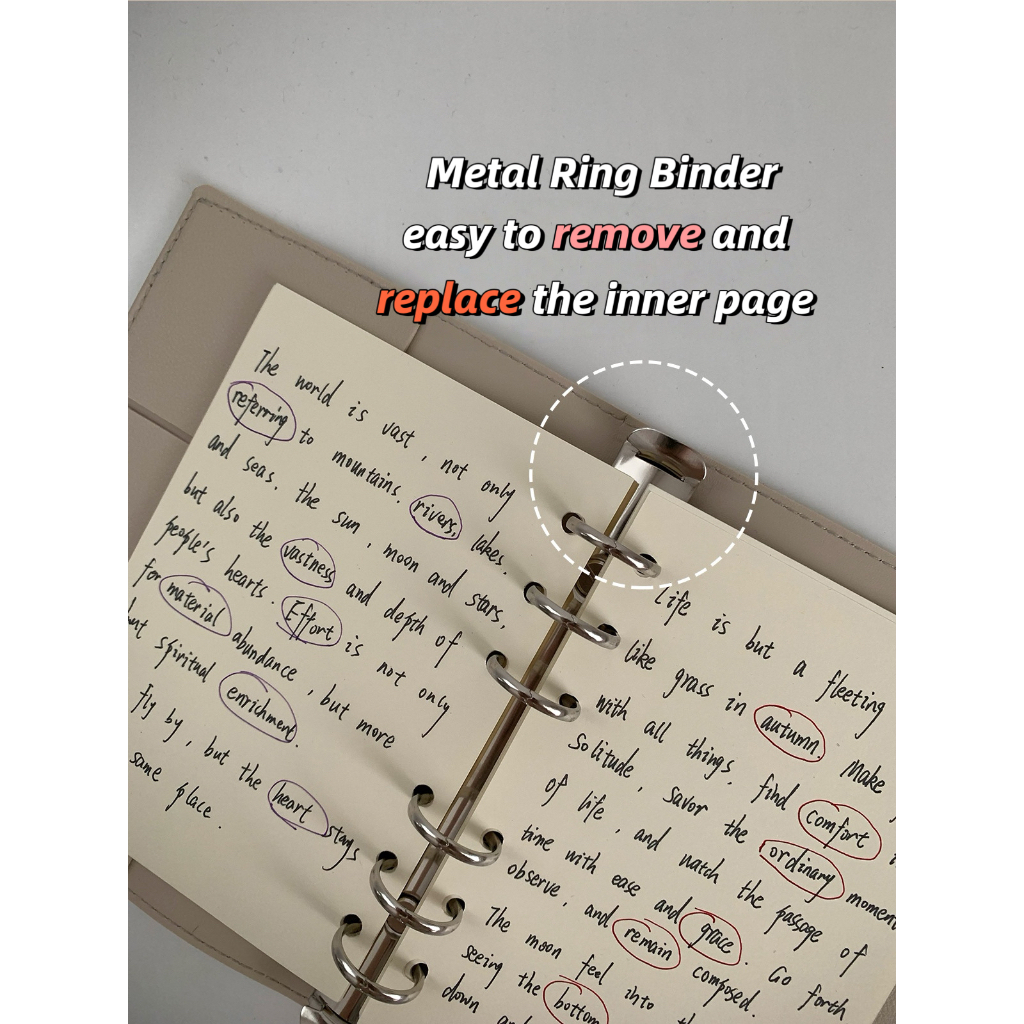 Metal Ring Binder
easy to remove and
replace the inner page
The world is vast, not only
referring to mountains. rivers, lakes.
and seas. the sun, moon and stars,
but also the vastness and depth of
people's hearts. Effort is not only
for material abundance, but more
but spiritual enrichment.
fly by, but the heart stays
same place.
Life is but a fleeting
like grass in autumn. Make
with all things, find comfort
Solitude, savor the ordinary momen
of life, and watch the passage of
time with ease and grace. Go forth
observe, and remain composed.
The moon feel into
seeing the bottom
down